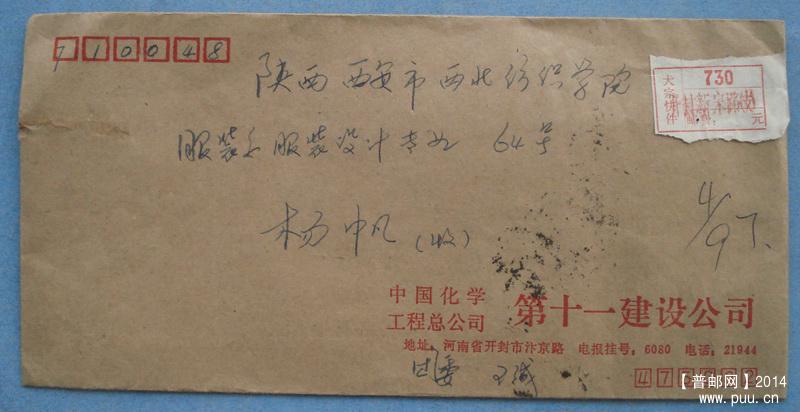 710048
陕西 西安市 西北纺织学院
730
大宗快件
元
服装系 服装设计专业 64号
杨帆 (收)
中国化学
工程总公司
第十一建设公司
地址:河南省开封市汴京路 电报挂号:6080 电话:21944
团委
【普邮网】2014
www.puu.cn